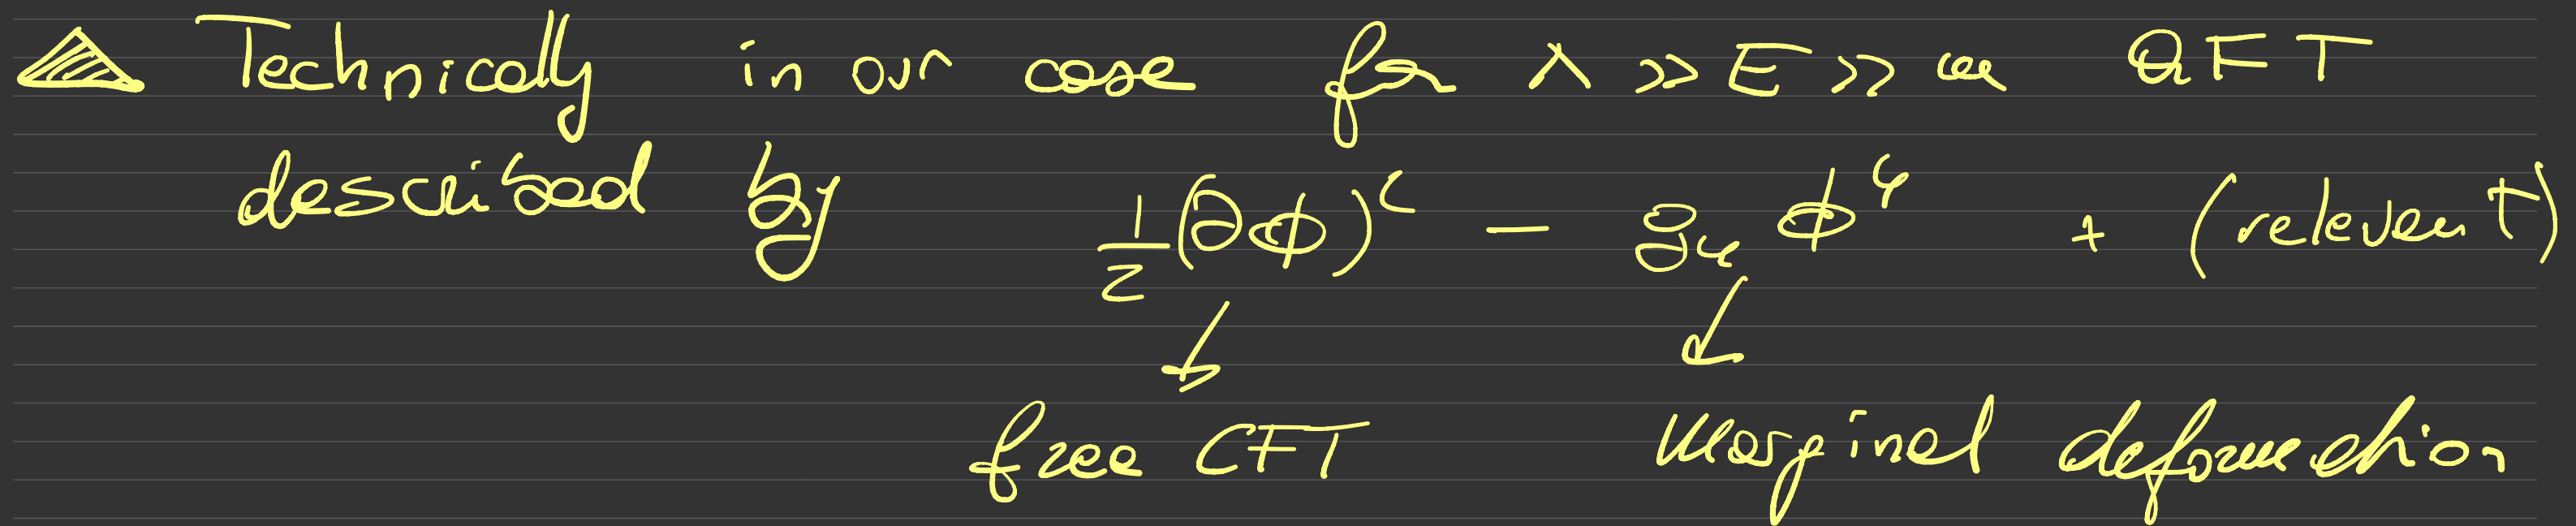 Technically in our case for Λ >> E >> m QFT
described by 1/2 (∂ϕ)² − g₄ ϕ⁴ + (relevent)
↓ ↓
free CFT Marginal deformation